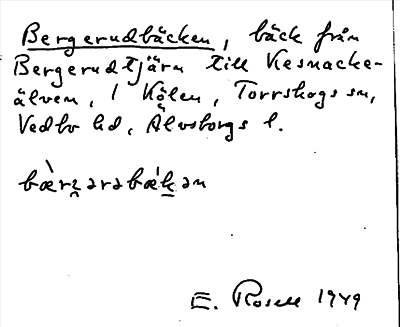 Bergerudbäcken, bäck från
Bergerudtjärn till Kesnacke-
älven, i Kölen, Torrskogs sn,
Vedbo hd, Älvsborgs l.
bæ̀rʒərəbæ̍kən
E. Rosell 1949